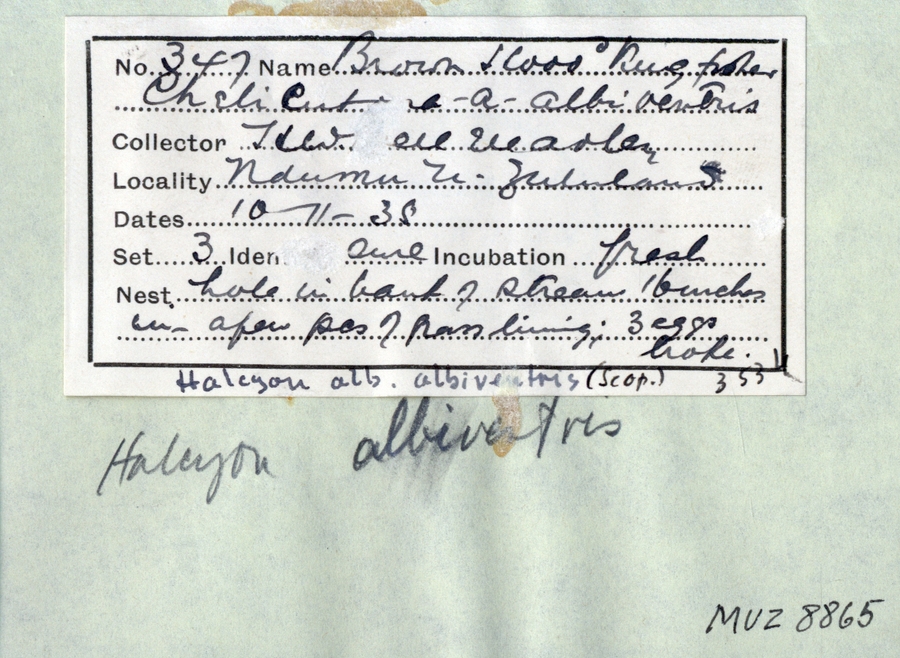 No. 347 Name Brown Hood° Kingfisher
Chelicut a-a-albiventris
Collector
Locality Ndumu N. Zululand
Dates 10-11-38
Set 3 Iden sure Incubation fresh
Nest hole in bank of stream 16 inches
in- a few pcs of grass lining; 3 eggs
broke.
Halcyon alb. albiventris (Scop.) 353
Halcyon albiventris
MVZ 8865